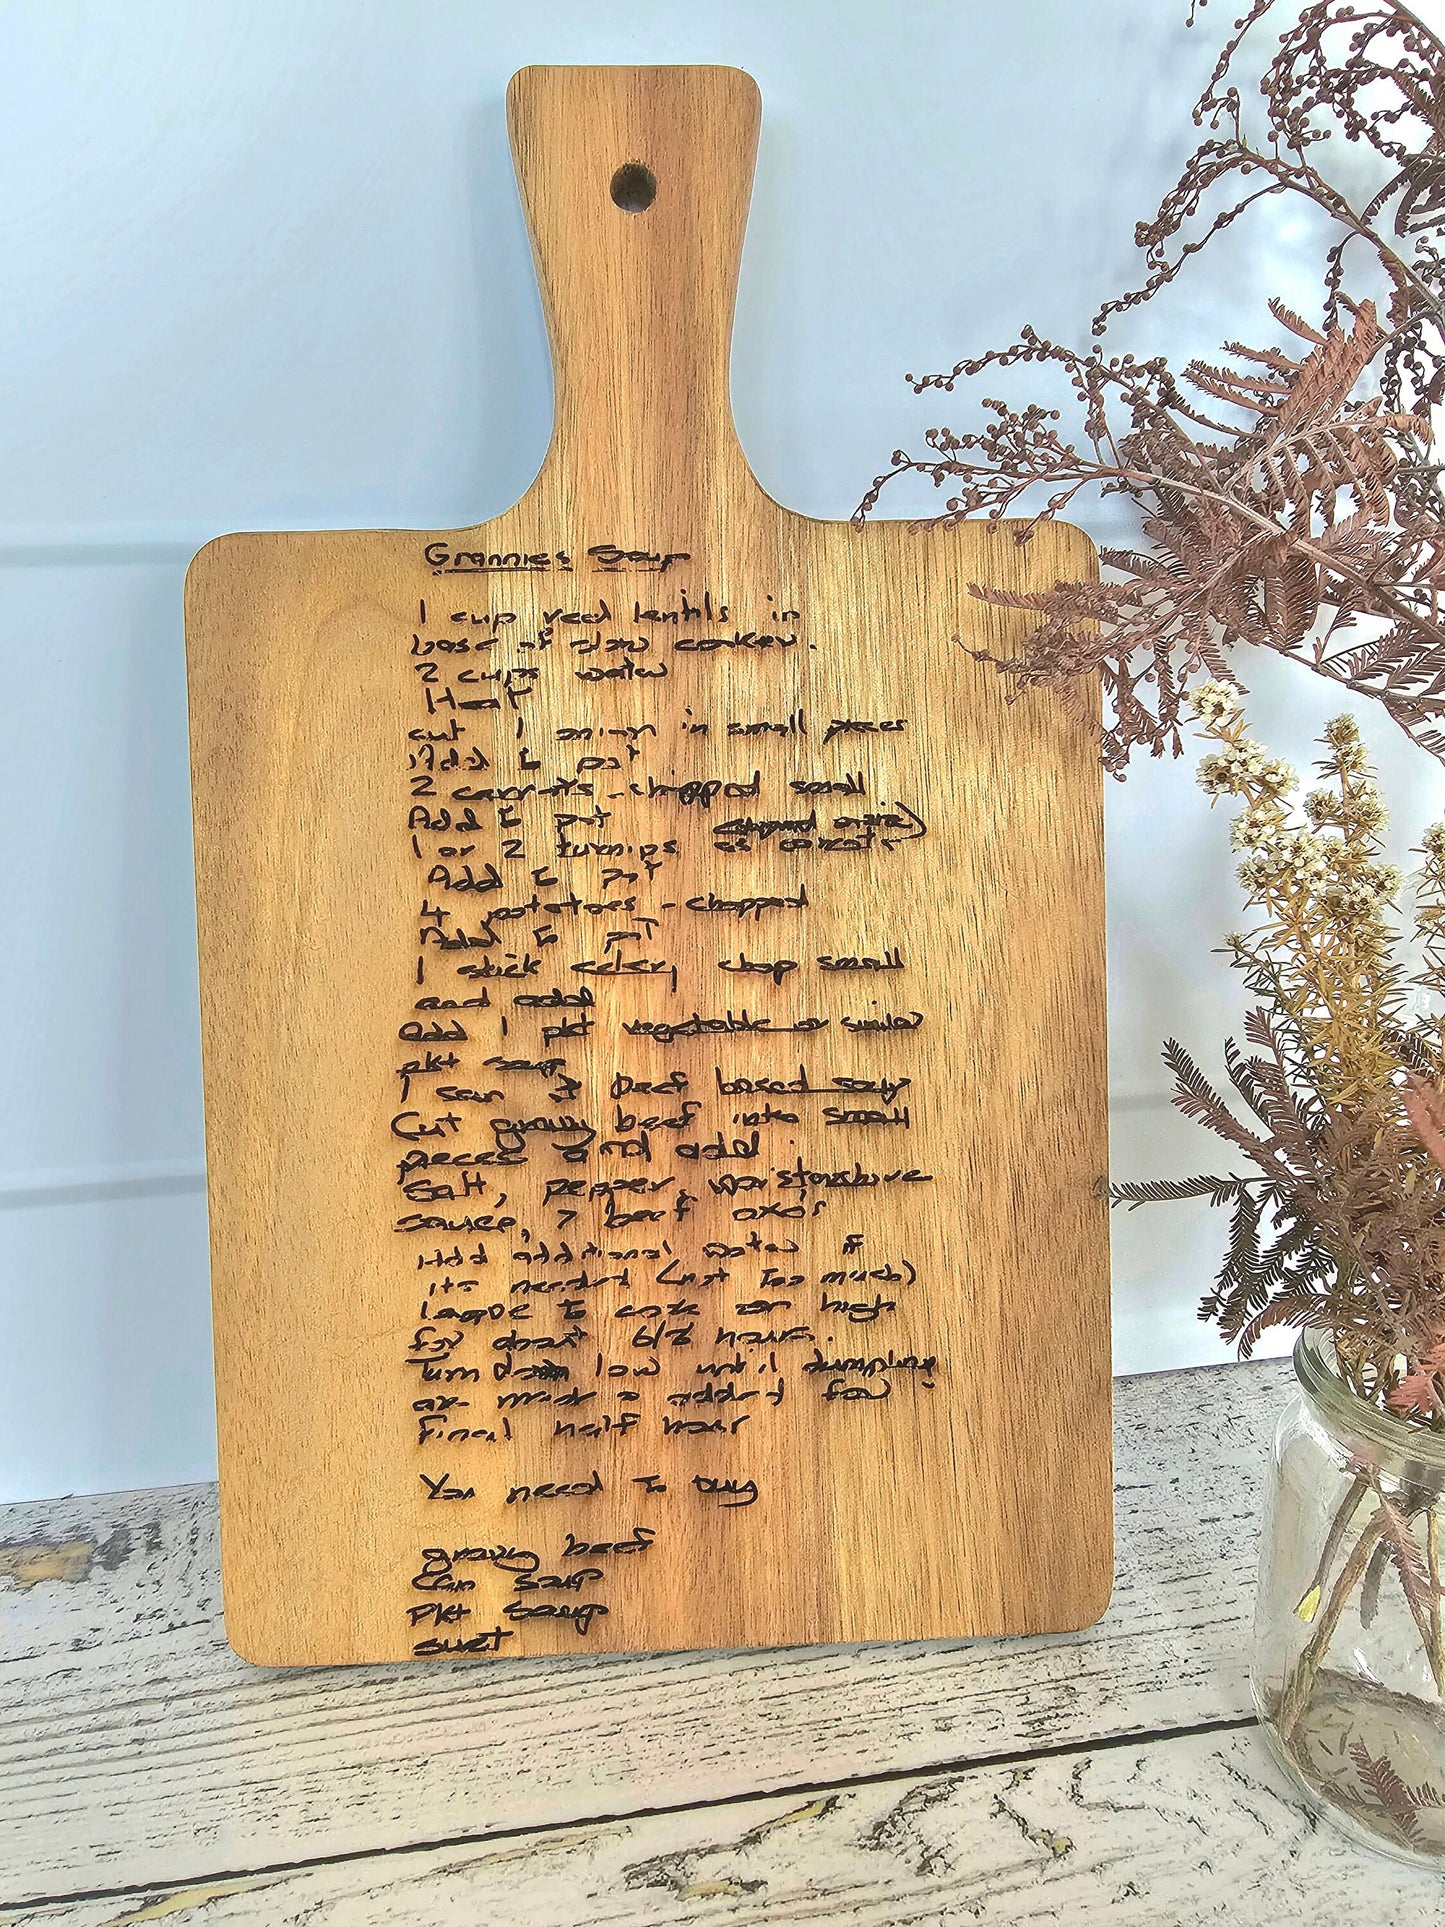 Grannies Soup
1 cup red lentils in
base of slow cooker.
2 cups water
Heat
cut 1 onion in small pieces
Add to pot
2 carrots - chopped small
Add to pot
1 or 2 turnips as carrots
Add to pot
4 potatoes - chopped
Add to pot
1 stick celery chop small
and add
add 1 pkt vegetable or similar
pkt soup
1 beef based soup
Cut gravy beef into small
pieces and add.
Salt, pepper, worstershire
sauce, 7 beef oxo's
Add additional water if
its needed (not too much)
Leave to cook on high
for about hours.
Turn down low until dumpling
are made & added for
final half hour
You need to buy
gravy beef
can soup
pkt soup
suet